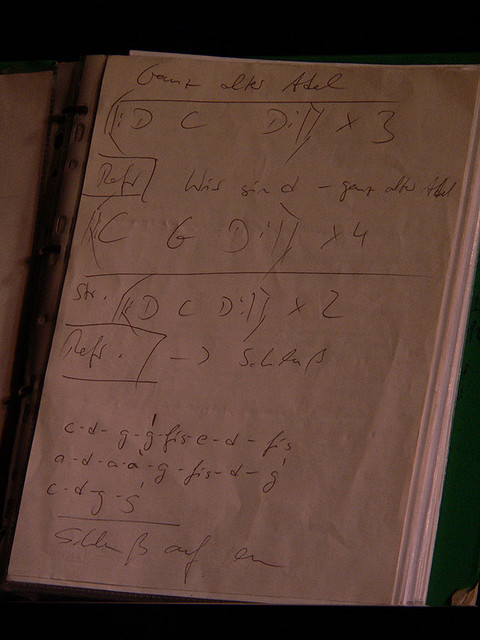 Ganz alter Adel
|: D C D :| x 3
Refr Wir sind - ganz alter Adel
|: C G D :| x 4
Str. |: D C D :| x 2
Refr. -> Schluß
c-d-g-g'-fis-e-d-fis
a-d-a-a'-g-fis-d-g'
c-d-g-g'
Schluß auf em